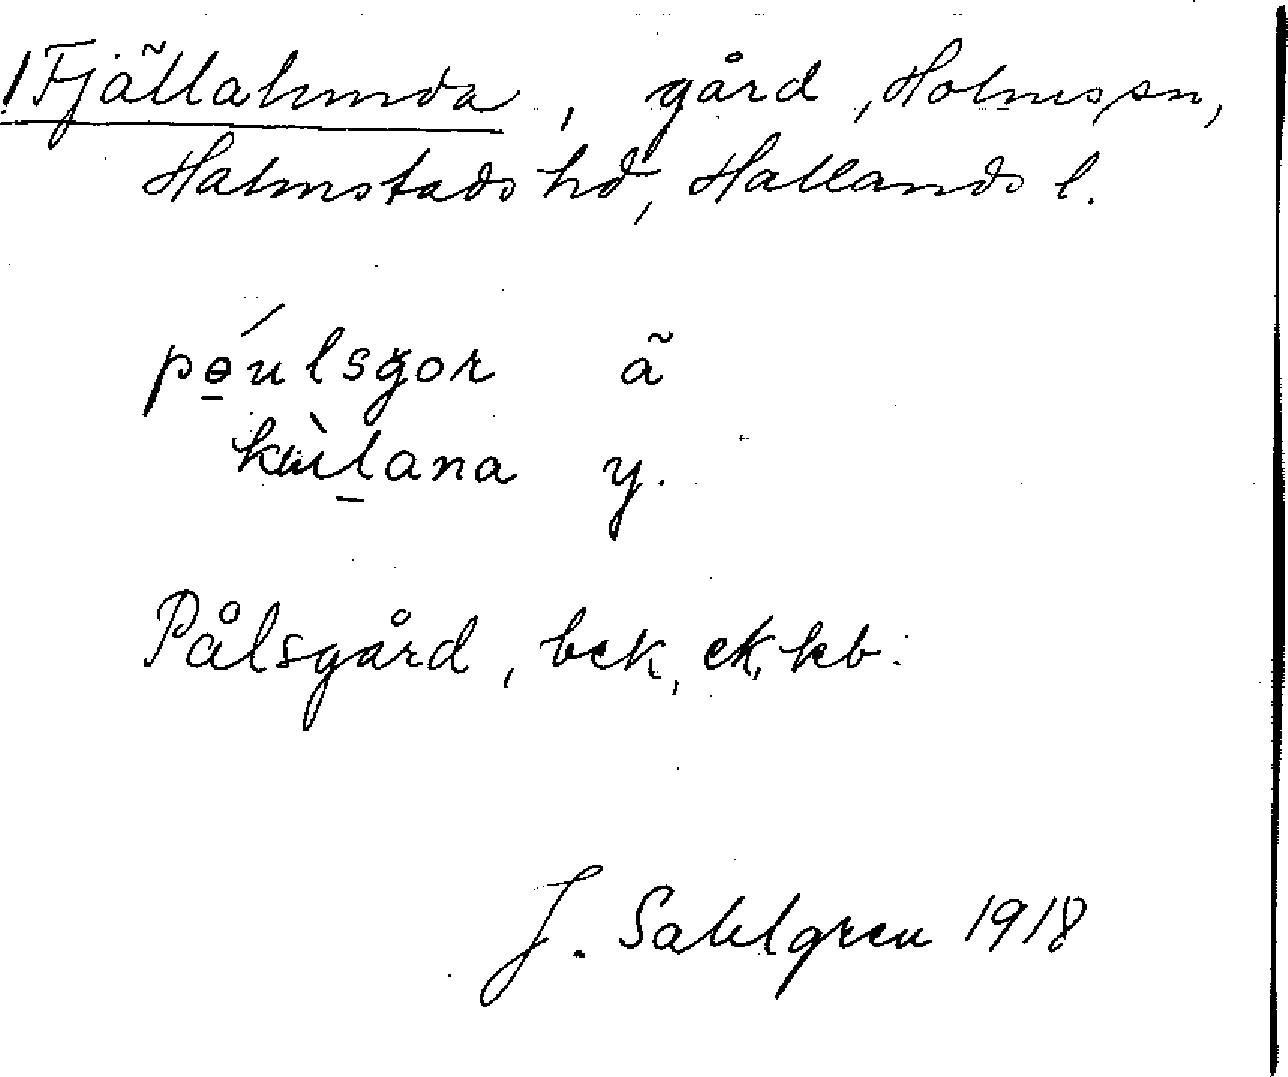 /Fjällalunda, gård, Holms sn,
Halmstads hd, Hallands l.
pɵ́ulsgor ã
kùlana y.
Pålsgård, bck, ck, kb.
J. Sahlgren 1918